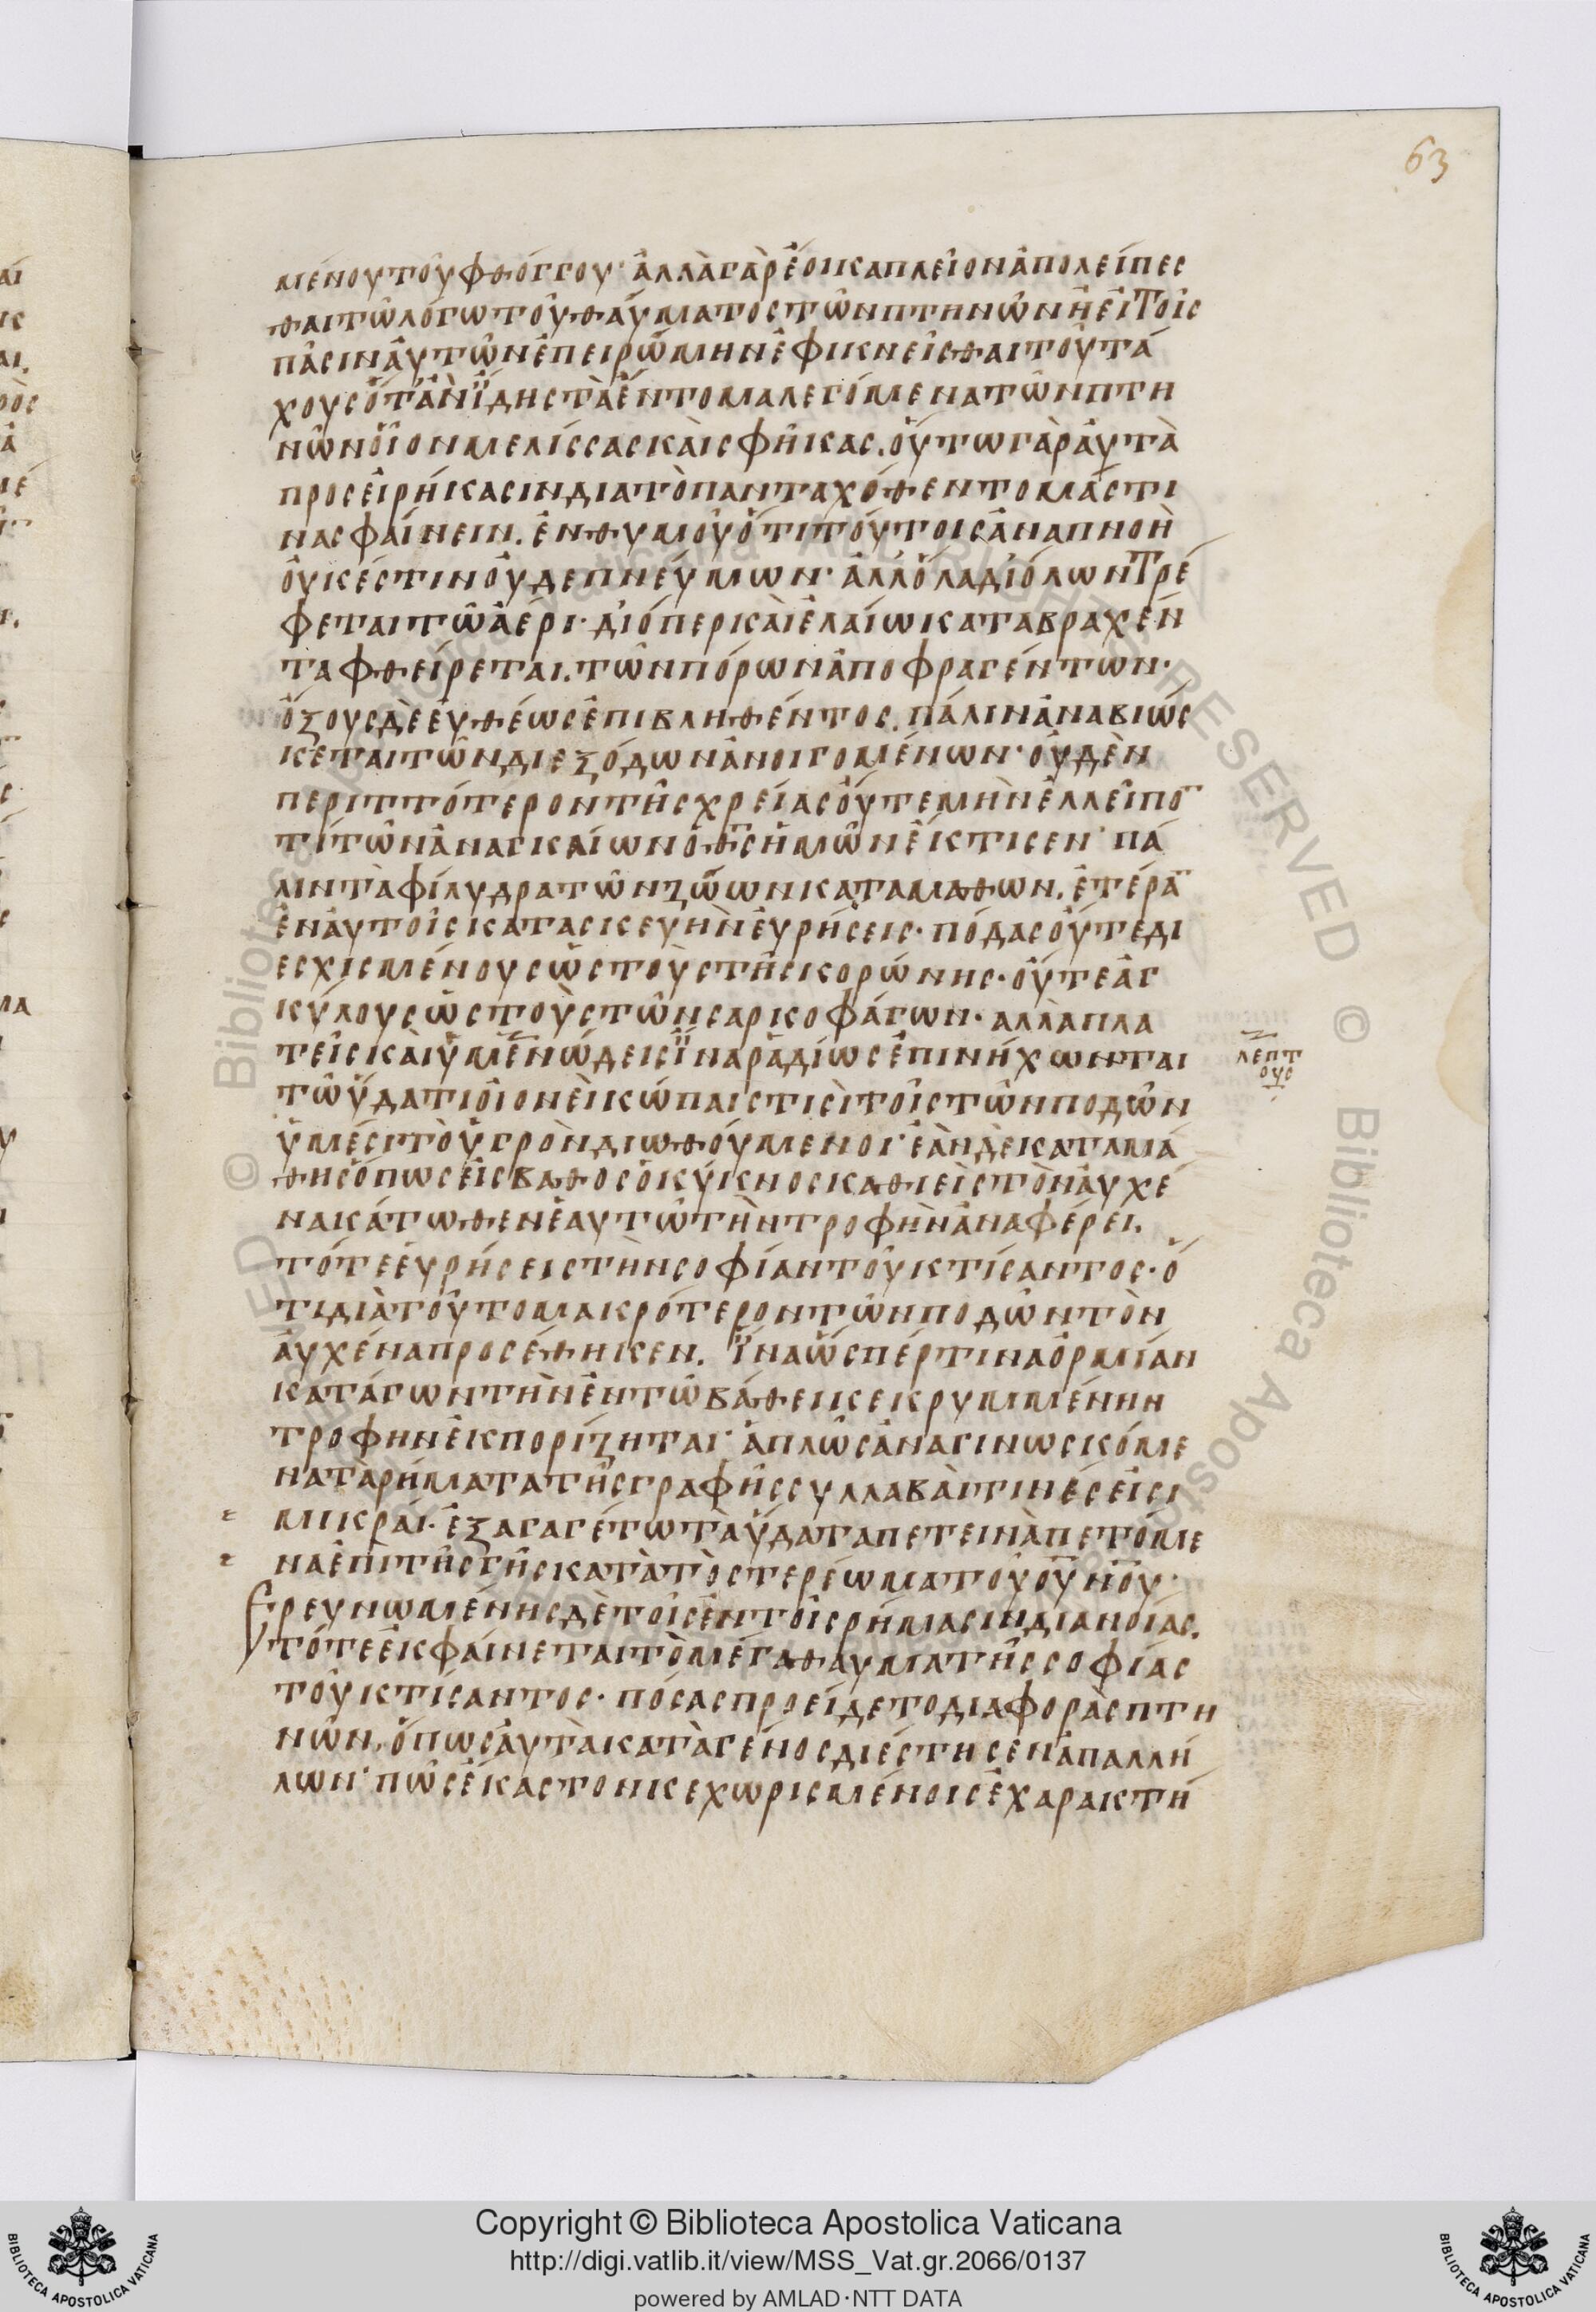 63
μένου τοῦ φθόγγου· ἀλλὰ γὰρ ἔοικα πλεῖον ἀπολείπεσ
θαι τῶ λόγω τοῦ θαύματος τῶν πτηνῶν ἢ εἰ τοῖς
πᾶσιν αὐτῶν ἐπειρώμην ἐφικνεῖσθαι τοῦ τά
χους ὅταν ἴδης τὰ ἔντομα λεγόμενα τῶν πτη
νῶν οἷον μελίσσας καὶ σφῆκας. οὕτω γὰρ αὐτὰ
προσειρήκασιν διὰ τὸ πανταχόθεν τομάς τι
νας φαίνειν. ἐνθυμοῦ ὅτι τούτοις ἀναπνοὴ
οὐκ ἔστιν οὐδε πνεύμων· ἀλλ' ὅλα δι' ὅλων τρέ
φεται τῶ ἀέρι· διόπερ καὶ ἐλαίω καταβραχέν
τα φθείρεται. τῶν πόρων ἀποφραγέντων·
ὄξους δὲ εὐθέως ἐπιβληθέντος. πάλιν ἀναβιώς
κεται τῶν διεξόδων ἀνοιγομένων· οὐδὲν
περιττότερον τῆς χρείας οὔτε μὴν ἐλλεῖπο̄
τί τῶν ἀναγκαίων ὁ θ̄ς ἡμῶν ἔκτισεν· πά
λιν τὰ φίλυδρα τῶν ζώων καταμαθων. ἑτέρᾱ
ἐν αὐτοῖς κατασκευὴν εὑρήσεις· πόδας οὔτε δι
εσχισμένους ὡς τοὺς τῆς κορώνης· οὔτε ἀγ
κύλους ὡς τοὺς τῶν σαρκοφάγων· αλλὰ πλα
τεῖς καὶ ὑμενώδεις ἵνα ραδίως ἐπινήχωνται
λεπτ
ους
τῶ ὕδατι οἱονεὶ κώπαις τισὶ τοῖς τῶν ποδῶν
ὑμέσι τὸ ὑγρὸν διωθούμενοι· ἐὰν δὲ καταμά
θης ὅπως εἰς βαθος ὁ κύκνος καθιεὶς τὸν αὐχέ
να κάτωθεν ἑαυτῶ τὴν τροφὴν ἀναφέρει.
τότε εὑρήσεις τὴν σοφίαν τοῦ κτίσαντος· ὅ
τι διὰ τοῦτο μακρότερον τῶν ποδῶν τὸν
αὐχένα προσέθηκεν. ἵνα ὥσπέρ τινα ὁρμιὰν
κατάγων τὴν ἐν τῶ βάθει κεκρυμμένην
τροφην ἐκπορίζηται· ἁπλῶς ἀναγινωσκόμε
να τὰ ρήματα τῆς γραφῆς συλλαβαί τινές εἰσι
μικραί· ἐξαγαγέτω τὰ ὕδατα πετεινὰ πετόμε
να ἐπὶ τῆς γῆς κατὰ τὸ στερέωμα τοῦ οῦ̄νο̄ῦ·
Ερευνωμένης δὲ τοῖς ἐν τοῖς ρήμασιν διανοίας.
τότε ἐκφαίνεται τὸ μέγα θαυμα τῆς σοφίας
τοῦ κτίσαντος· πόσας προείδετο διαφορὰς πτη
νῶν. ὅπως αὐτὰ κατὰ γένος διέστησεν ἀπ αλλή
λων· πῶς ἕκαστον κεχωρισμένοις ἐχαρακτή
Copyright © Biblioteca Apostolica Vaticana
http://digi.vatlib.it/view/MSS_Vat.gr.2066/0137
powered by AMLAD·NTT DATA
BIBLIOTECA APOSTOLICA VATICANA
BIBLIOTECA APOSTOLICA VATICANA